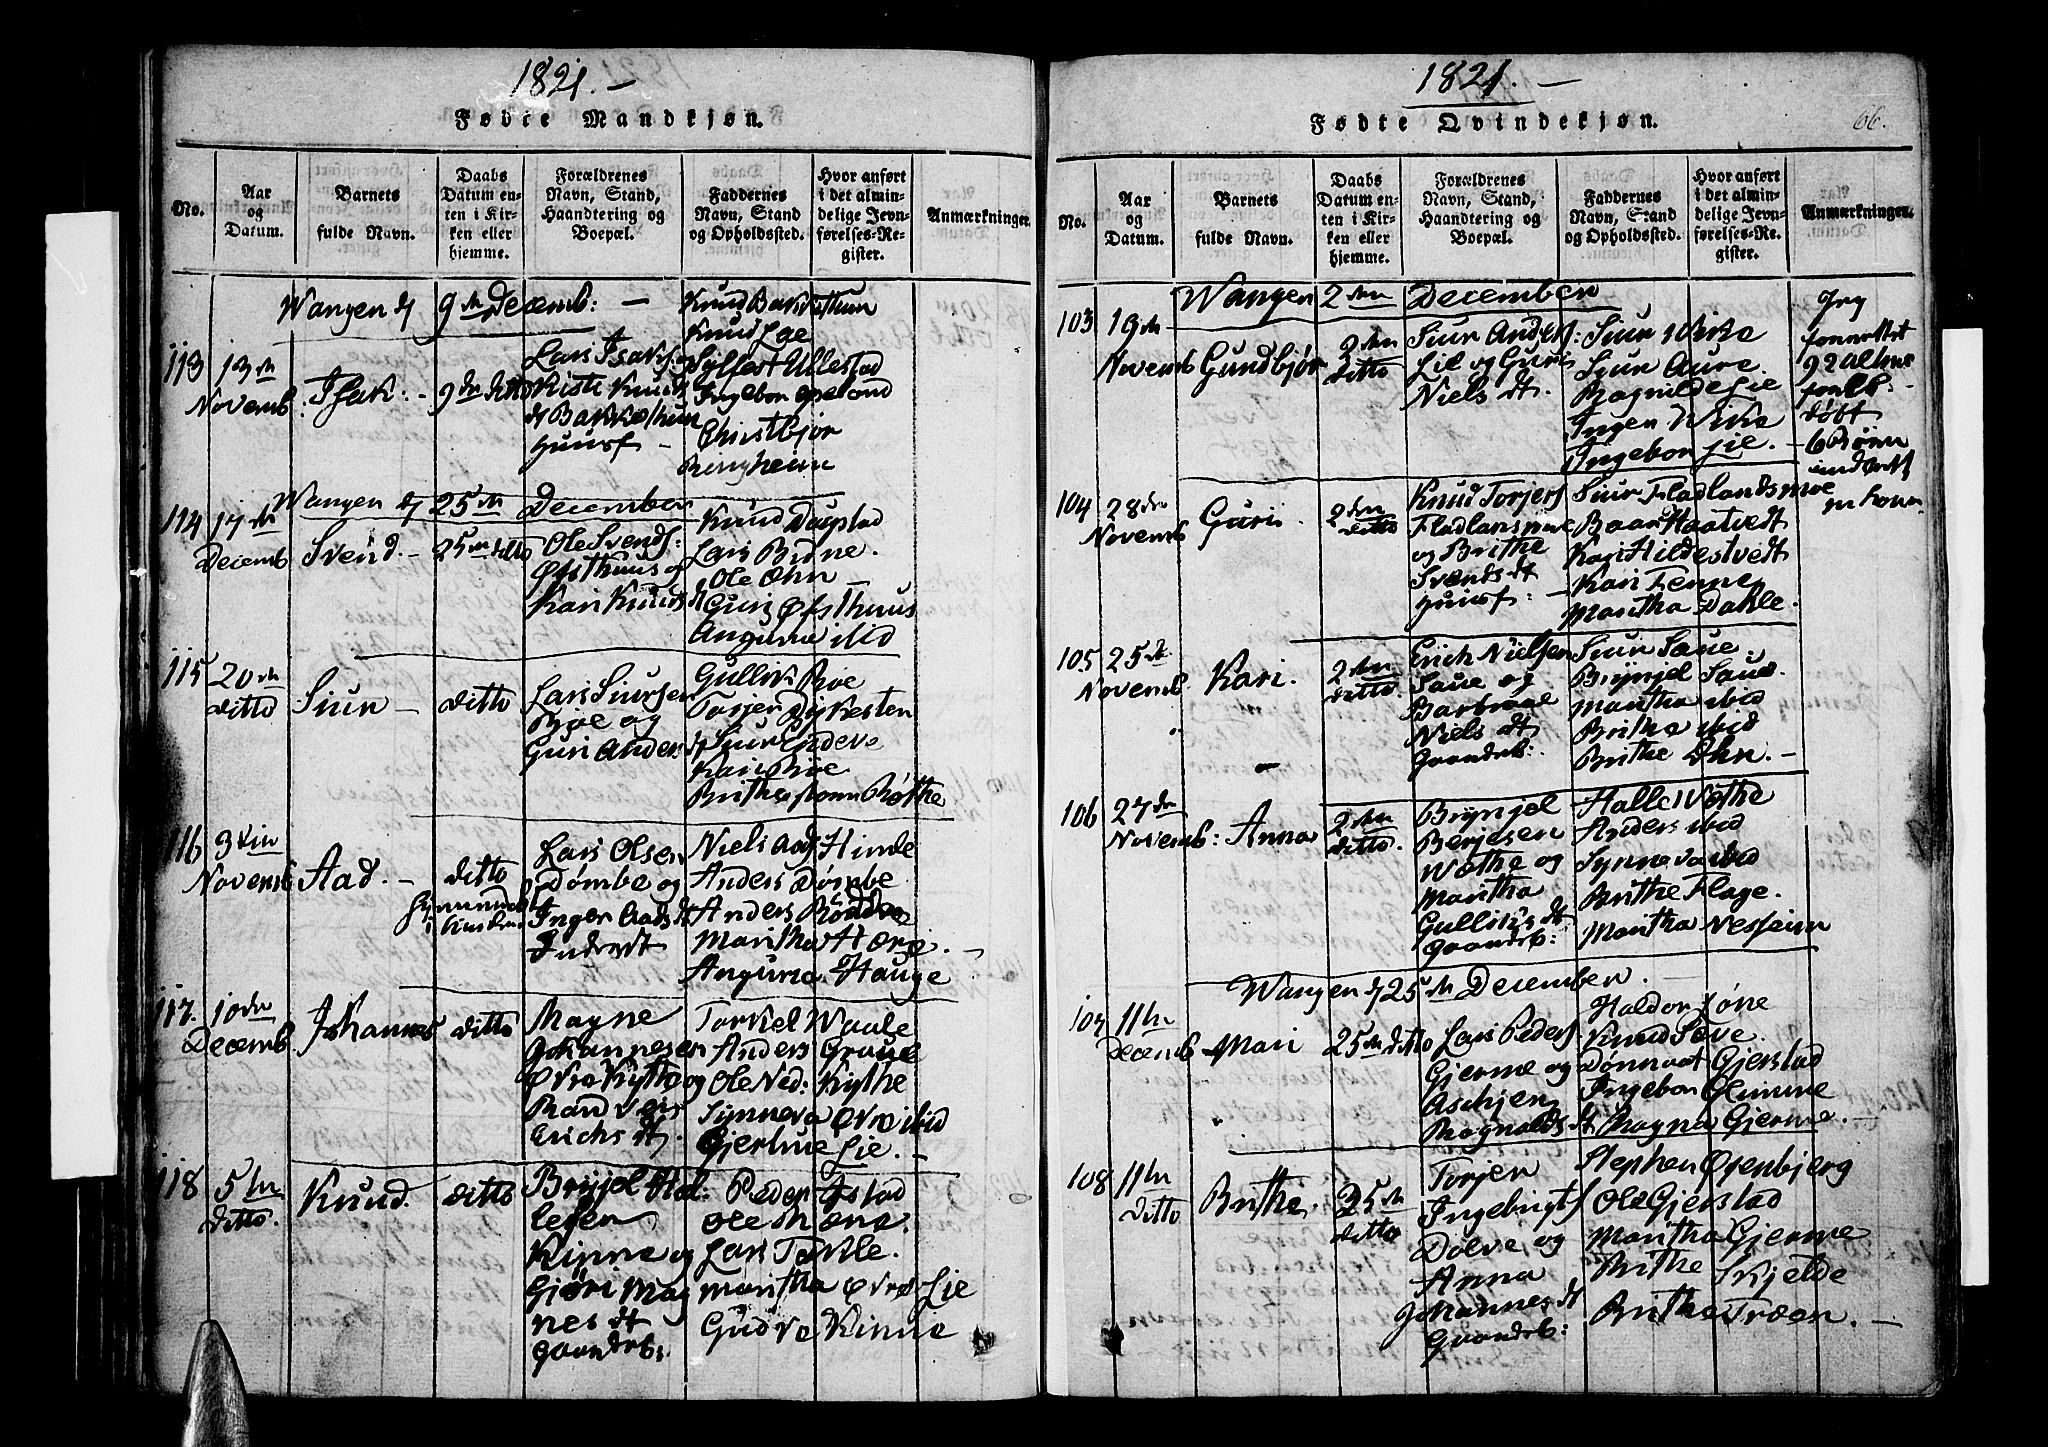 1821. –
Fødte Mandkjøn.
No.
Aar
og
Datum.
Barnets
fulde Navn.
Daabs
Datum en-
ten i Kir-
ken eller
hjemme.
Forældrenes
Navn, Stand,
Haandtering og
Boepæl.
Faddernes
Navn, Stand
og Opholdssted.
Hvor anført
i det almin-
delige Jevn-
førelses-Re-
gister.
Anmærkninger.
Wangen d 9de Decemb: –
113
13de
Novemb:
Isak. –
9de ditto
Lars Isaks: og
Kisti Knuds dt
Bakkethun
Huusf –
Knud Bakkethun
Knud Lee
Sylfest Ullestad
Ingebor Opeland
Christbjør
Ringheim
Wangen d 25de December
114
17de
Decemb
Svend. –
25de ditto
Ole Svends:
Østhuus og
Kari Knuds dt
Knud Dagstad
Lars Bidne.
Ole Øhn –
Guri Østhuus
Angunne ibid
115
20de
ditto
Siur –
ditto
Lars Siursen
Bøe og
Guri Anders dt
Gullik Bøe
Torjer Dykesten
Siur Endeve
Kari Bøe
Brithe Røthe
116
3die
Novemb
Aad. –
ditto
Lars Olsen
Dømbe og
Inger Aads dt
Inderst
Niels Hinde
Anders Dømbe
Anders Rønde
Maritha Hærje. –
Angunna Hauge
117.
10de
Decemb.
Johannes
ditto
Magne
Johannesen
Øvre Kytte og
Randveig
Erichs dt.
Torkiel Waale
Anders Graue
Ole Ned: Kythe
Synneva Øvre ibid
Gjertrue Lie. –
118
5te
ditto.
Knud.
ditto
Brynjel Hal:
lesen
Kinne og
Gjøri Mag
nes dt
Gaardrb.
Peder Istad
Ole Mæne.
Lars Takle.
Maritha Øvre Lie
Gudve Kinne
1821. –
66.
Fødte Qvindekjøn.
No.
Aar
og
Datum.
Barnets
fulde Navn.
Daabs
Datum en-
ten i Kir-
ken eller
hjemme.
Forældrenes
Navn, Stand,
Haandtering og
Boepæl.
Faddernes
Navn, Stand
og Opholdssted.
Hvor anført
i det almin-
delige Jevn-
førelses-Re-
gister.
Anmærkninger.
Wangen 2den December
103
19de
Novemb
Gundbjør
2den
ditto
Siur Anders:
Lie og Guri
Niels dt.
Siur Wike
Siur Aure
Ragnilde Lie
Inger Wike
Ingebor Lie. –
Jeg
forrettet
døbt
6 Børn
104
28de
Novemb
Guri.
2den
ditto
Knud Torjers
Fladlansmoe
og Brithe
Svends dt
Huusf: –
Siur Fladlandsmoe
Baar Haatvedt
Kari Hildestvedt
Kari Fenne
Maritha Dahle.
105
25de
Novemb.
Kari.
2den
ditto
Erich Nielsen
Saue og
Barbroe
Niels dt
Gaardrb:
Siur Saue.
Brynjel Saue.
Maritha ibid
Brithe ibid
Brithe Øhn. –
106
27de
Novemb:
Anna
2den
ditto.
Brynjel
Berjesen
Wæthe og
Maritha
Gulliks dt
Gaardrb:
Halle Wæthe
Anders ibid
Synneva ibid
Brithe Flage.
Maritha Nesheim
Wangen d 25de December.
107
11te
Decemb
Mari
25de ditto
Lars Peders
Gjerme og
Aschjer
Magnalds dt
Haldor Løne
Knud Søve.
Dønnaat Gjerstad
Ingebor Glimme
Magna Gjerme. –
108
11te
ditto
Brithe.
25de
ditto
Torjer
Ingebrigts
Dølve og
Anna
Johannes dt
Gaardrb:
Stephen Øvenbjerg
Ole Gjerstad
Maritha Gjerme
Brithe Skjelde
Brithe Træen. –